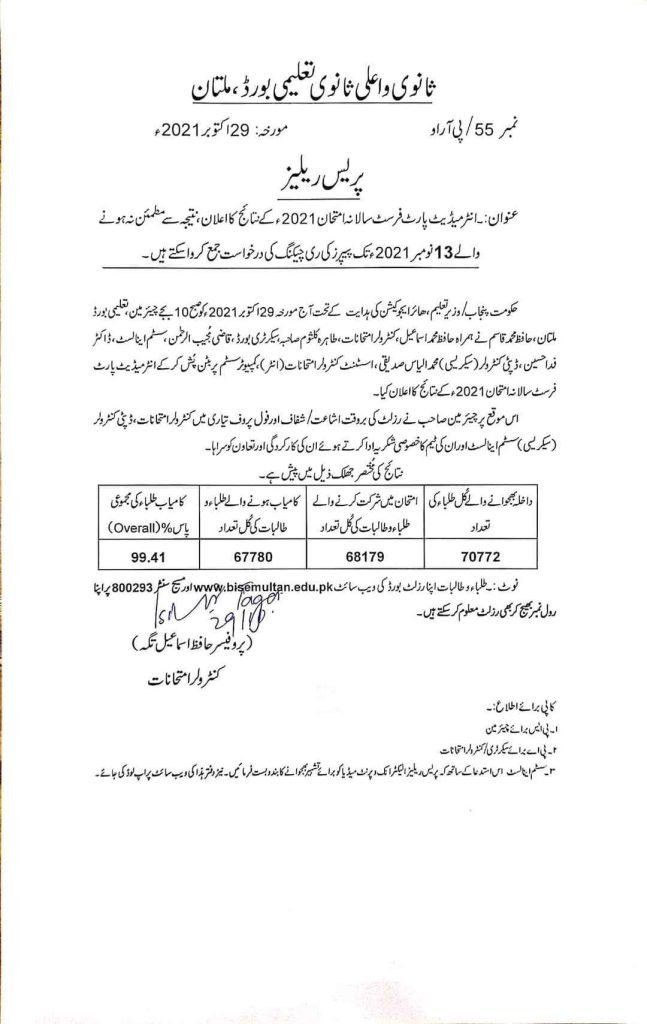 ثانوی و اعلیٰ ثانوی تعلیمی بورڈ، ملتان
نمبر 55/پی آر او
مورخہ: 29 اکتوبر 2021ء
پریس ریلیز
عنوان:۔ انٹرمیڈیٹ پارٹ فرسٹ سالانہ امتحان 2021ء کے نتائج کا اعلان، نتیجہ سے مطمئن نہ ہونے
والے 13 نومبر 2021ء تک پیپرز کی ری چیکنگ کی درخواست جمع کروا سکتے ہیں۔
حکومت پنجاب/وزیر تعلیم، ھائر ایجوکیشن کی ہدایت کے تحت آج مورخہ 29 اکتوبر 2021ء کو صبح 10 بجے چیئرمین، تعلیمی بورڈ
ملتان، حافظ محمد قاسم نے ہمراہ حافظ محمد اسماعیل، کنٹرولر امتحانات، طاہرہ کلثوم صاحبہ، سیکرٹری بورڈ، قاضی مجیب الرحمٰن، سسٹم اینالسٹ، ڈاکٹر
فدا حسین، ڈپٹی کنٹرولر (سیکریسی) محمد الیاس صدیقی، اسسٹنٹ کنٹرولر امتحانات (انٹر)، کمپیوٹر سسٹم پر بٹن پُش کر کے انٹرمیڈیٹ پارٹ
فرسٹ سالانہ امتحان 2021ء کے نتائج کا اعلان کیا۔
اس موقع پر چیئرمین صاحب نے رزلٹ کی بروقت اشاعت/شفاف اور فول پروف تیاری میں کنٹرولر امتحانات، ڈپٹی کنٹرولر
(سیکریسی) سسٹم اینالسٹ اور ان کی ٹیم کا خصوصی شکریہ ادا کرتے ہوئے ان کی کارکردگی اور تعاون کو سراہا۔
نتائج کی مُختصر جھلک ذیل میں پیش ہے۔
داخلہ بھجوانے والے کُل طلباء کی تعداد
امتحان میں شرکت کرنے والے طلباء و طالبات کی کُل تعداد
کامیاب ہونے والے طلباء و طالبات کی کُل تعداد
کامیاب طلباء کی مجموعی پاس% (Overall)
70772
68179
67780
99.41
نوٹ:۔ طلباء و طالبات اپنا رزلٹ بورڈ کی ویب سائٹ www.bisemultan.edu.pk اور میسج سنٹر 800293 پر اپنا
رول نمبر بھیج کر بھی رزلٹ معلوم کر سکتے ہیں۔
29/10
(پروفیسر حافظ اسماعیل تگہ)
کنٹرولر امتحانات
کاپی برائے اطلاع:۔
۱۔ پی ایس برائے چیئرمین
۲۔ پی اے برائے سیکرٹری/کنٹرولر امتحانات
۳۔ سسٹم اینالسٹ اس استدعا کے ساتھ کہ پریس ریلیز الیکٹرانک و پرنٹ میڈیا کو برائے تشہیر بھجوانے کا بندوبست فرمائیں۔ نیز دفتر ہذا کی ویب سائٹ پر اپ لوڈ کی جائے۔